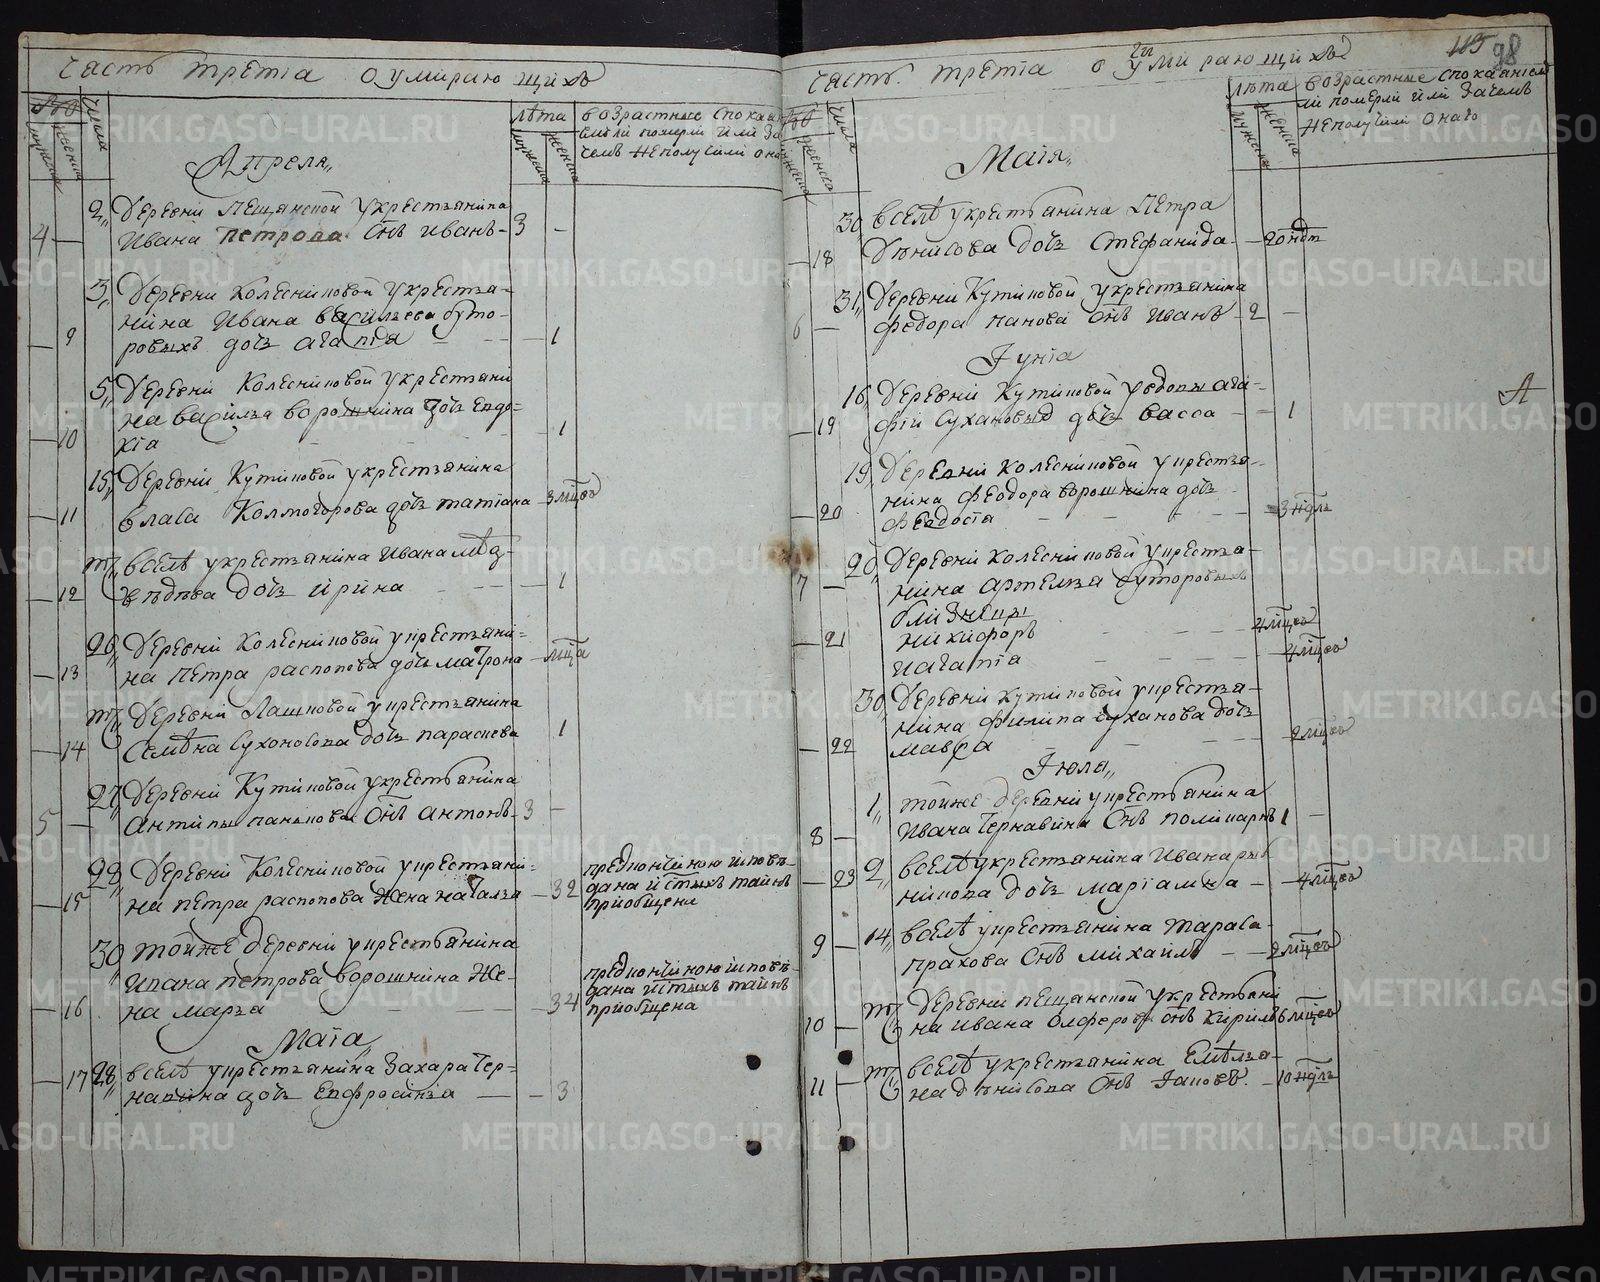 часть третіа о умираю щихъ
число
мужеска
женска
лѣта
мужеска
женска
возрастные спокая
емъ ли померли или за
чемъ неполучили она
Апреля„
2„ деревни Пещанской у крестьянина
4 — Ивана петрова сн҃ъ иванъ - 3 -
3„ деревни Колесниковой укрестья=
нина Ивана васильева буто-
— 9 ровыхъ дочь агапіа - - - 1
5„ деревни Колесниковой укрестьяни
на василья ворошнина дочь Евдо=
— 10 кіа - - - - 1
15„ деревни Кутиковой укрестьянина
— 11 власа Колмогорова дочь татіана - 3 мцов
т„ всѣлѣ укрестьянина Ивана мед-
— 12 ведева дочь ирина - - - 1
26„ деревни Колесниковой укрестьяни=
— 13 на Петра распопова дочь матрона - мца
т„ деревни Лашковой укрестьянина
— 14 Семена Сухоносова дочь параскева 1
27„ деревни Кутиковой укрестьянина
5 — антипы панкова сн҃ъ антонъ - 3 -
28„ деревни Колесниковой укрестьяни=
— 15 на петра распопова жена наталья - 32
предкончиною исповѣ-
дана и стыхъ таинъ
приобщена
30 тойже деревни укрестьянина
ивана петрова ворошнина же-
— 16 на марья - - - 34
предкончиною исповѣ
дана и стыхъ таинъ
приобщена
Маіа„
— 17 28„ всѣлѣ укрестьянина Захара Чер=
навина дочь Евфросинья — - 3
часть третіа о умираю щихъ
115 98
число
мужеска
женска
лѣта
мужеска
женска
возрастные спокаяніем
ли померли или зачемъ
неполучили онаго
Маіа„
30 всѣлѣ укрестьянина Петра
— 18 денисова дочь Стефанида - — 2 ндл
31„ деревни Кутиковой укрестьянина
6 — федора панова сн҃ъ Иванъ - 2 -
Іуніа
16„ деревни Кутиковой увдовы ага-
— 19 фіи Сухановыд дочь васса - - 1
А
19„ деревни Колесниковой укрестья-
нина феодора ворошнина дочь
— 20 феодосіа - - - 3 ндлъ
20„ деревни Колесниковой укрестья-
7 — нина артемья буторовыхъ
близнецы
никифоръ - - - 4 мцов
— 21 иагапіа - - - 4 мцов
30„ деревни Кутиковой укрестья-
нина филипа Суханова дочь
— 22 мавра - - - 2 мцов
Іюля„
1„ тойже деревни укрестьянина
8 — Ивана Чернавина Сн҃ъ поликарпъ 1 -
2„ всѣлѣ укрестьянина Ивана
— 23 никова дочь маріамна - - 4 мцов
14„ всѣлѣ укрестьянина тараса
9 — прахова Сн҃ъ михаилъ - - 2 мцов
т„ деревни пещанской укрестьяни
10 — на Ивана Олферова сн҃ъ Кирилъ 6 мцов
т„ всѣлѣ укрестьянина Емелья-
11 — на денисова Сн҃ъ Іаковъ. - 10 ндлъ